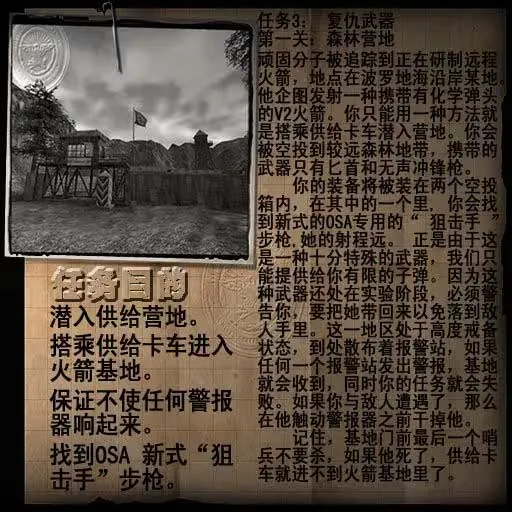 任务3： 复仇武器
第一关：森林营地
顽固分子被追踪到正在研制远程
火箭，地点在波罗地海沿岸某地。
他企图发射一种携带有化学弹头
的V2火箭。你只能用一种方法就
是搭乘供给卡车潜入营地。你会
被空投到较远森林地带，携带的
武器只有匕首和无声冲锋枪。
你的装备将被装在两个空投
箱内，在其中的一个里. 你会找
到新式的OSA专用的“ 狙击手 ”
步枪,她的射程远。 正是由于这
是一种十分特殊的武器，我们只
能提供给你有限的子弹。因为这
种武器还处在实验阶段，必须警
告你，要把她带回来以免落到敌
人手里。这一地区处于高度戒备
状态，到处散布着报警站，如果
任何一个报警站发出警报，基地
就会收到，同时你的任务就会失
败。如果你与敌人遭遇了，那么
在他触动警报器之前干掉他。
记住，基地门前最后一个哨
兵不要杀，如果他死了，供给卡
车就进不到火箭基地里了。
任务目的
潜入供给营地。
搭乘供给卡车进入
火箭基地。
保证不使任何警报
器响起来。
找到OSA 新式“狙
击手”步枪。